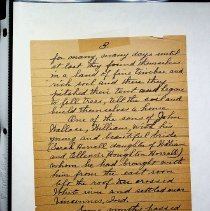 3
for many many days until
at last they found themselves
in a land of fine timber and
rich soil and there they
pitched their tent and began
to fell trees, till the soil and
build themselves a home.
One of the sons of John
Wallace, William, with his
young and beautiful bride
(Sarah Horrall daughter of William
and Ellender Houghton Horrall)
whom he had brought with
him from the east soon
left the roof tree crossed
the river and settled near
Vincennes, Ind.
months passed